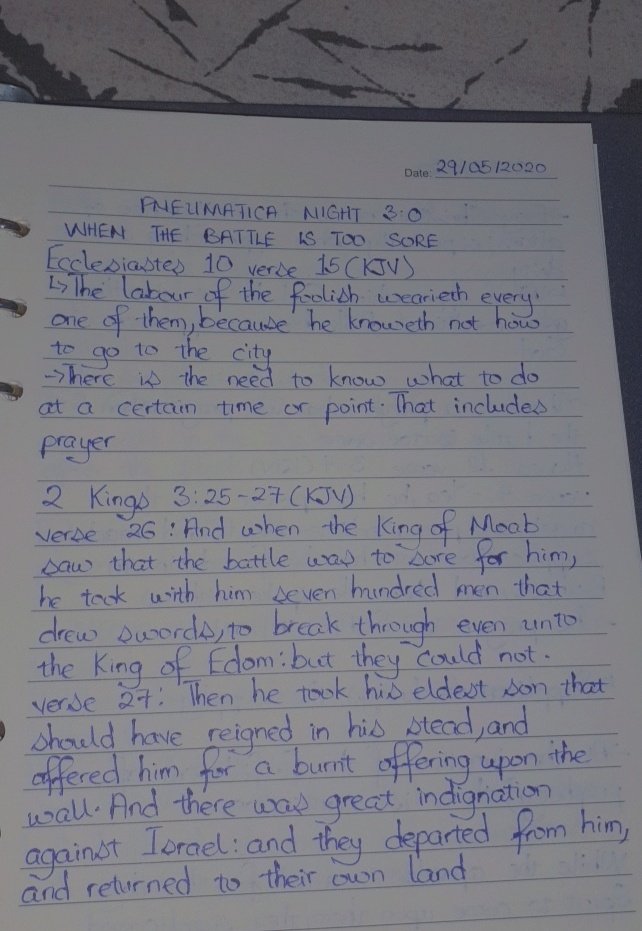 Date: 29/05/2020
PNEUMATICA NIGHT 3:0
WHEN THE BATTLE IS TOO SORE
Ecclesiastes 10 verse 15 (KJV)
↳ The labour of the foolish wearieth every
one of them, because he knoweth not how
to go to the city
→ There is the need to know what to do
at a certain time or point. That includes
prayer
2 Kings 3:25-27 (KJV)
verse 26: And when the King of Moab
saw that the battle was to sore for him,
he took with him seven hundred men that
drew swords, to break through even unto
the King of Edom: but they could not.
verse 27: Then he took his eldest son that
should have reigned in his stead, and
offered him for a burnt offering upon the
wall. And there was great indignation
against Israel: and they departed from him,
and returned to their own land